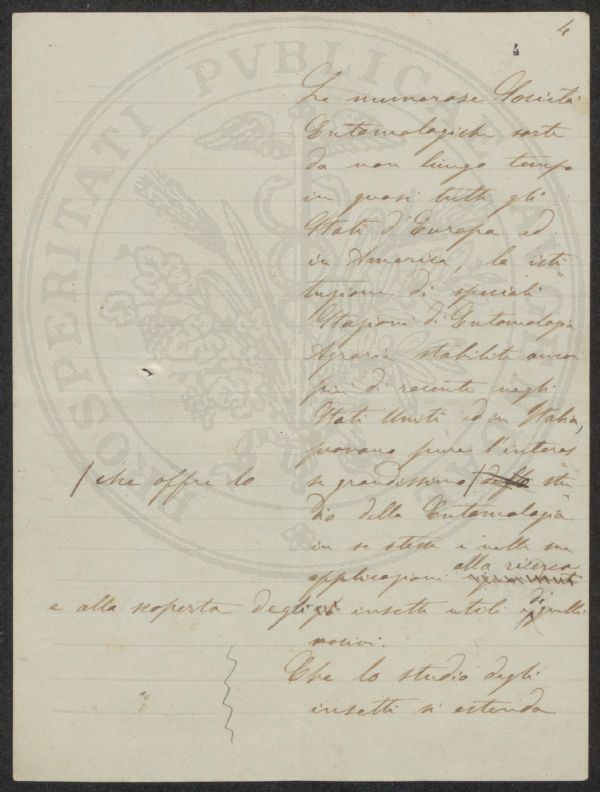 4
Le numerose Società
Entomologiche sorte
da non lungo tempo
in quasi tutti gli
Stati d'Europa ed
in America, la isti
tuzione di speciali
Stazioni di Entomologia
Agraria stabilite ancor
più di recente negli
Stati Uniti ed in Italia,
provano pure l'interes
se grandissimo / dello stu
/ che offre lo
dio della Entomologia
in se stessa e nelle sue
applicazioni alla ricerca
e alla scoperta degli insetti utili e di quelli
nocivi.
Che lo studio degli
insetti si estenda
PROSPERITATI PVBLICAE AVGENDAE